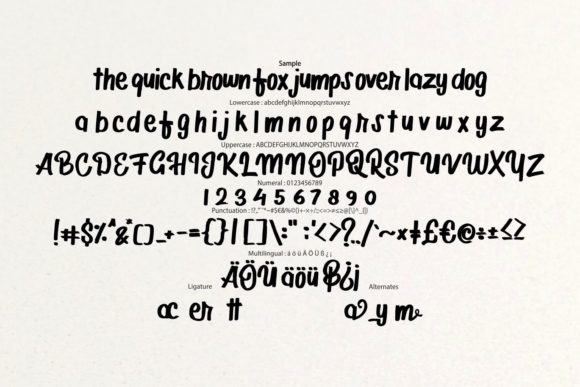 Sample
the quick brown fox jumps over lazy dog
Lowercase : abcdefghijklmnopqrstuvwxyz
a b c d e f g h i j k l m n o p q r s t u v w x y z
Uppercase : ABCDEFGHIJKLMNOPQRSTUVWXYZ
A B C D E F G H I J K L M N O P Q R S T U V W X Y Z
Numeral : 0123456789
1 2 3 4 5 6 7 8 9 0
Punctuation :
!#$%^&*()_+-={}|[]\:";'<>?,./`~×‡£€@÷±≤≥
Multilingual : ä ö ü Ä Ö Ü ß ¿ ¡
ÄÖÜ äöü ß¿¡
Ligature Alternates
oc er tt a y m